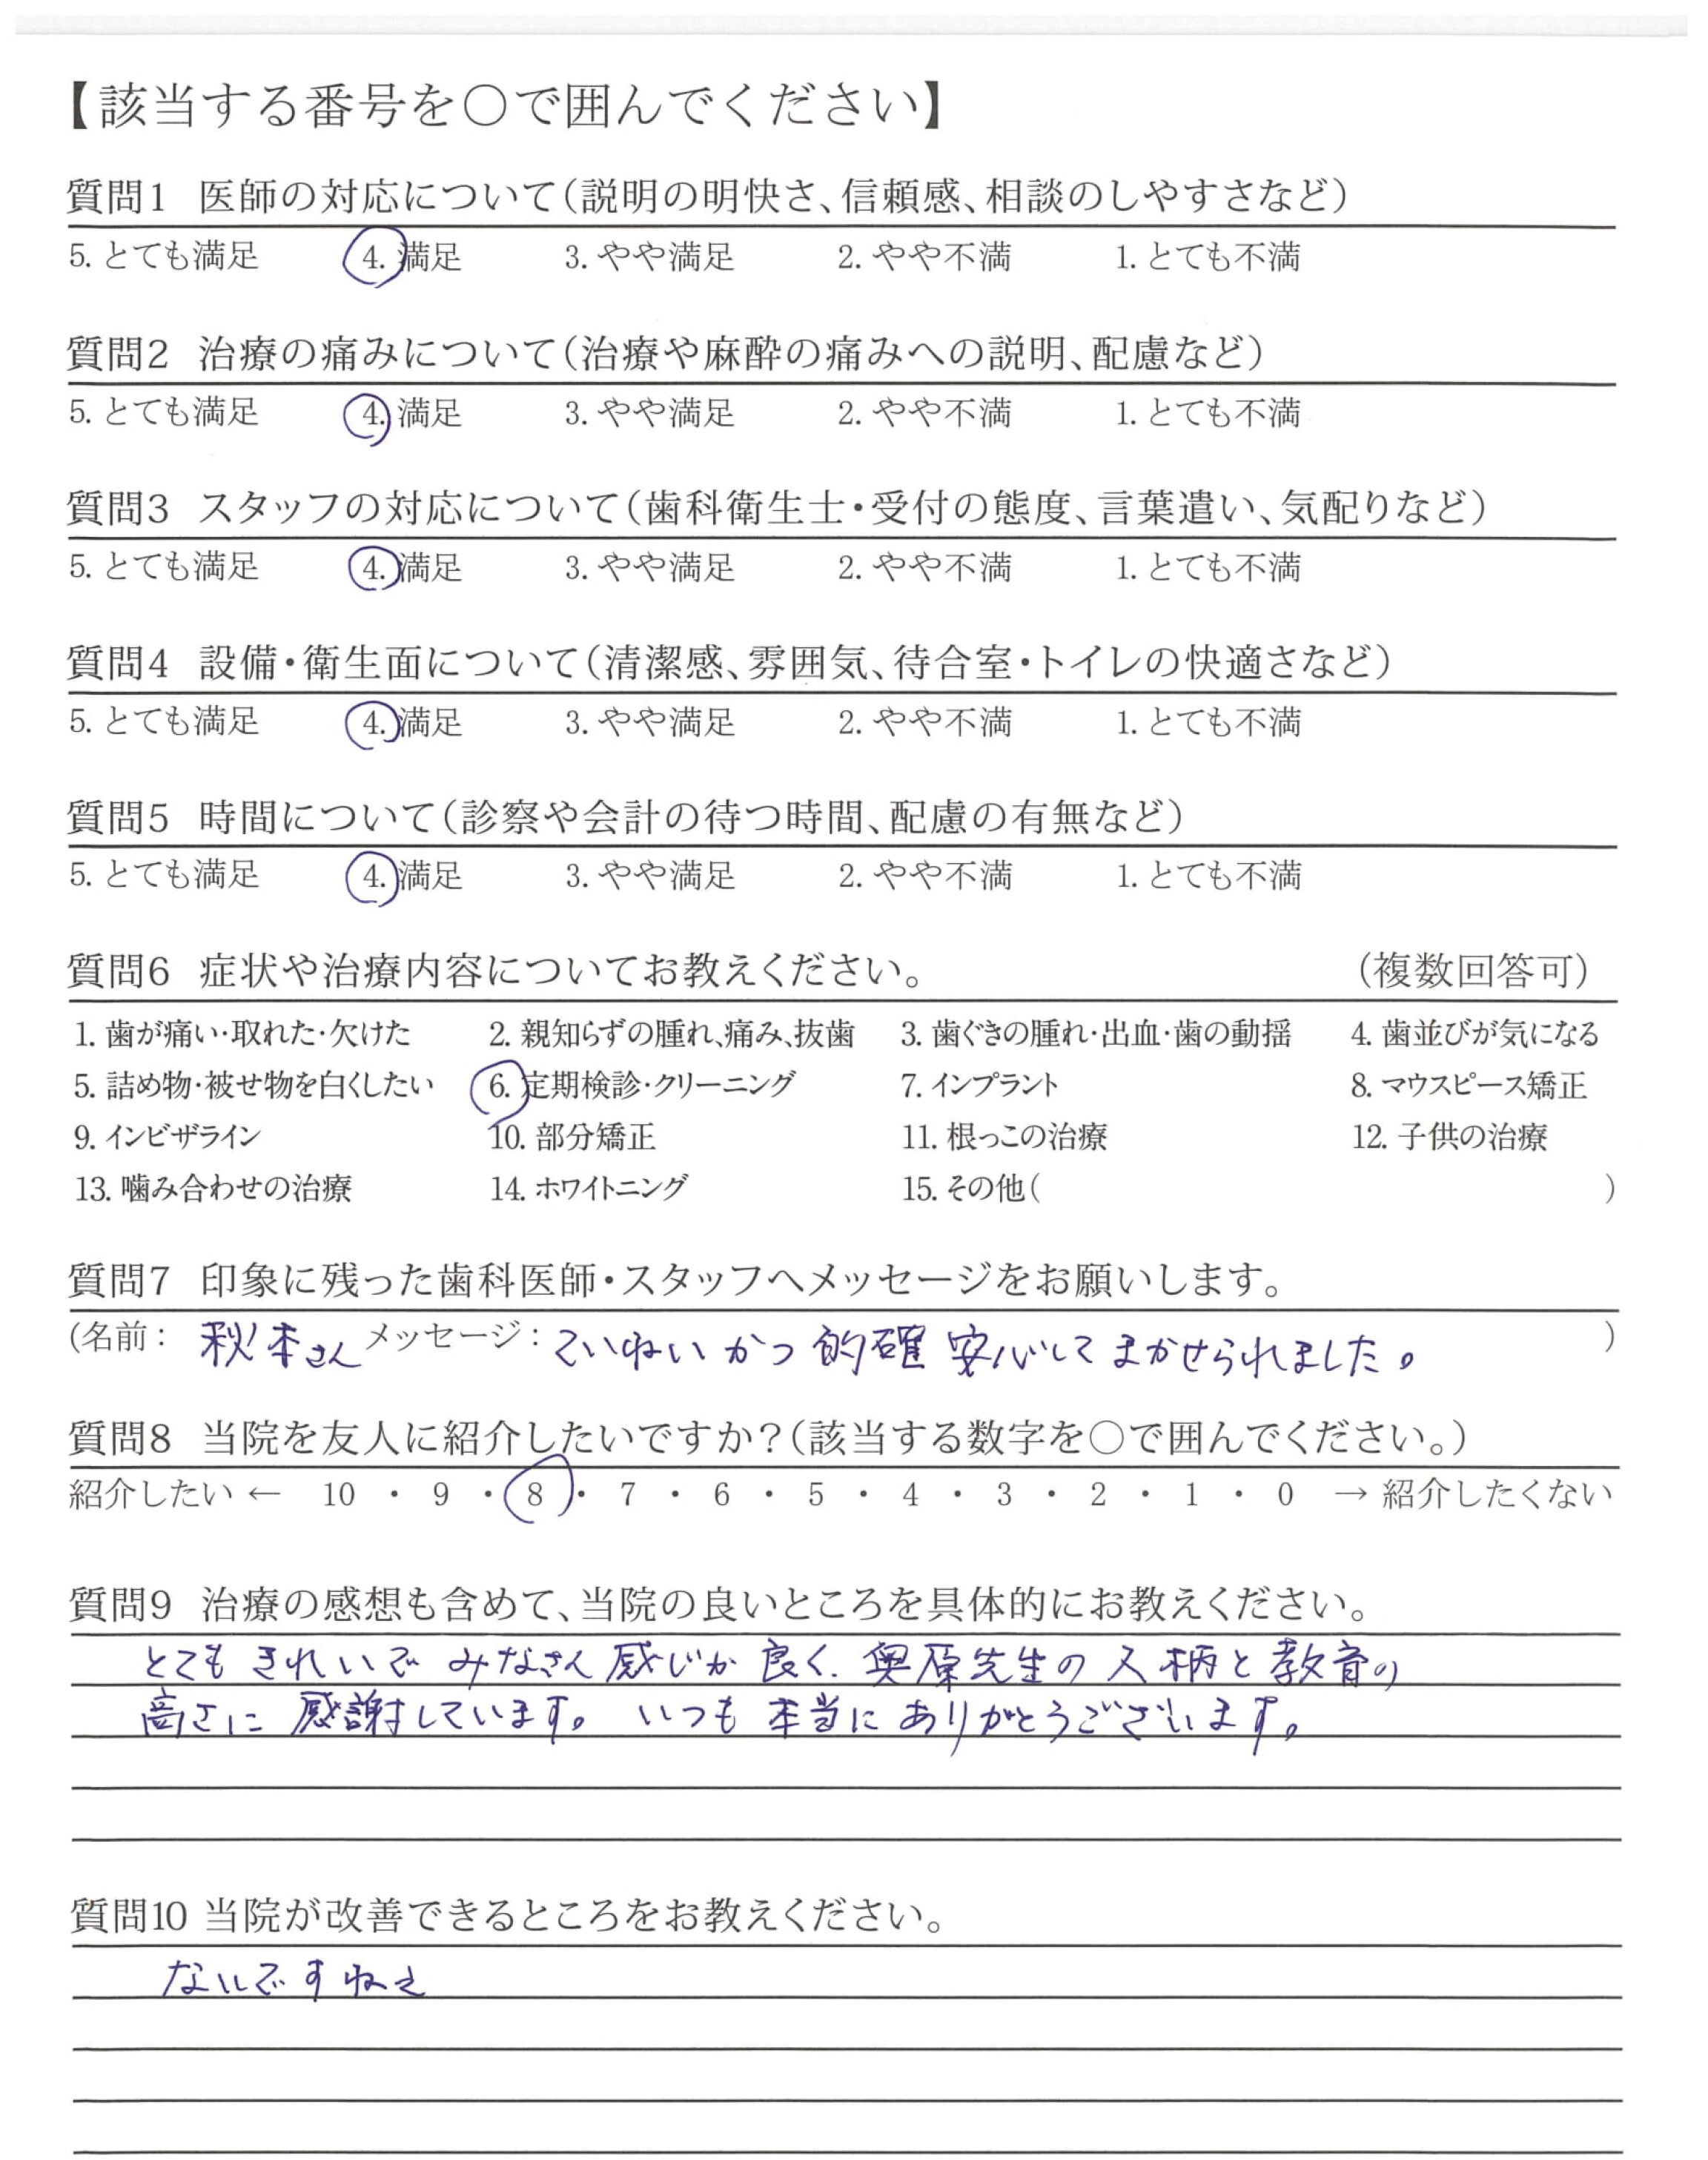 【該当する番号を○で囲んでください】
質問1 医師の対応について（説明の明快さ、信頼感、相談のしやすさなど）
5. とても満足 4. 満足 3. やや満足 2. やや不満 1. とても不満
質問2 治療の痛みについて（治療や麻酔の痛みへの説明、配慮など）
5. とても満足 4. 満足 3. やや満足 2. やや不満 1. とても不満
質問3 スタッフの対応について（歯科衛生士・受付の態度、言葉遣い、気配りなど）
5. とても満足 4. 満足 3. やや満足 2. やや不満 1. とても不満
質問4 設備・衛生面について（清潔感、雰囲気、待合室・トイレの快適さなど）
5. とても満足 4. 満足 3. やや満足 2. やや不満 1. とても不満
質問5 時間について（診察や会計の待つ時間、配慮の有無など）
5. とても満足 4. 満足 3. やや満足 2. やや不満 1. とても不満
質問6 症状や治療内容についてお教えください。 （複数回答可）
1. 歯が痛い・取れた・欠けた 2. 親知らずの腫れ、痛み、抜歯 3. 歯ぐきの腫れ・出血・歯の動揺 4. 歯並びが気になる
5. 詰め物・被せ物を白くしたい 6. 定期検診・クリーニング 7. インプラント 8. マウスピース矯正
9. インビザライン 10. 部分矯正 11. 根っこの治療 12. 子供の治療
13. 噛み合わせの治療 14. ホワイトニング 15. その他（ ）
質問7 印象に残った歯科医師・スタッフへメッセージをお願いします。
（名前： 秋本さん メッセージ： ていねいかつ的確 安心してまかせられました。 ）
質問8 当院を友人に紹介したいですか？（該当する数字を○で囲んでください。）
紹介したい ← 10 ・ 9 ・ 8 ・ 7 ・ 6 ・ 5 ・ 4 ・ 3 ・ 2 ・ 1 ・ 0 → 紹介したくない
質問9 治療の感想も含めて、当院の良いところを具体的にお教えください。
とてもきれいで みなさん感じが良く、奥原先生の人柄と教育の
高さに感謝しています。いつも本当にありがとうございます。
質問10 当院が改善できるところをお教えください。
ないですねえ